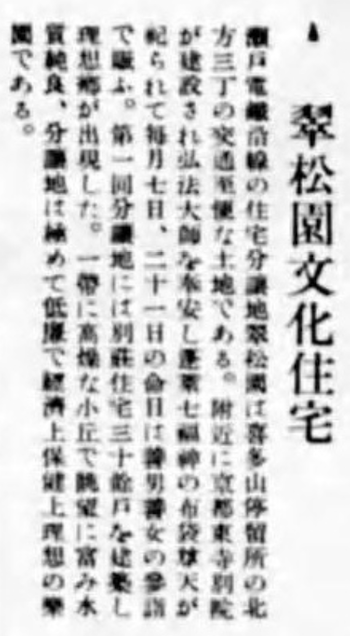 翠松園文化住宅
瀬戸電鐵沿線の住宅分讓地翠松園は喜多山停留所の北
方三丁の交通至便な土地である。附近に京都東寺別院
が建設され弘法大師を奉安し蓬萊七福神の布袋尊天が
祀られて毎月七日、二十一日の命日は善男善女の參詣
で賑ふ。第一回分讓地には別莊住宅三十餘戸を建築し
理想郷が出現した。一帶に高燥な小丘で眺望に富み水
質純良、分讓地は極めて低廉で經濟上保健上理想の樂
園である。